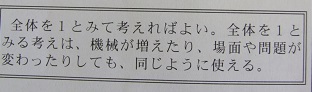 全体を１とみて考えればよい。全体を１と
みる考えは、機械が増えたり、場面や問題が
変わったりしても、同じように使える。